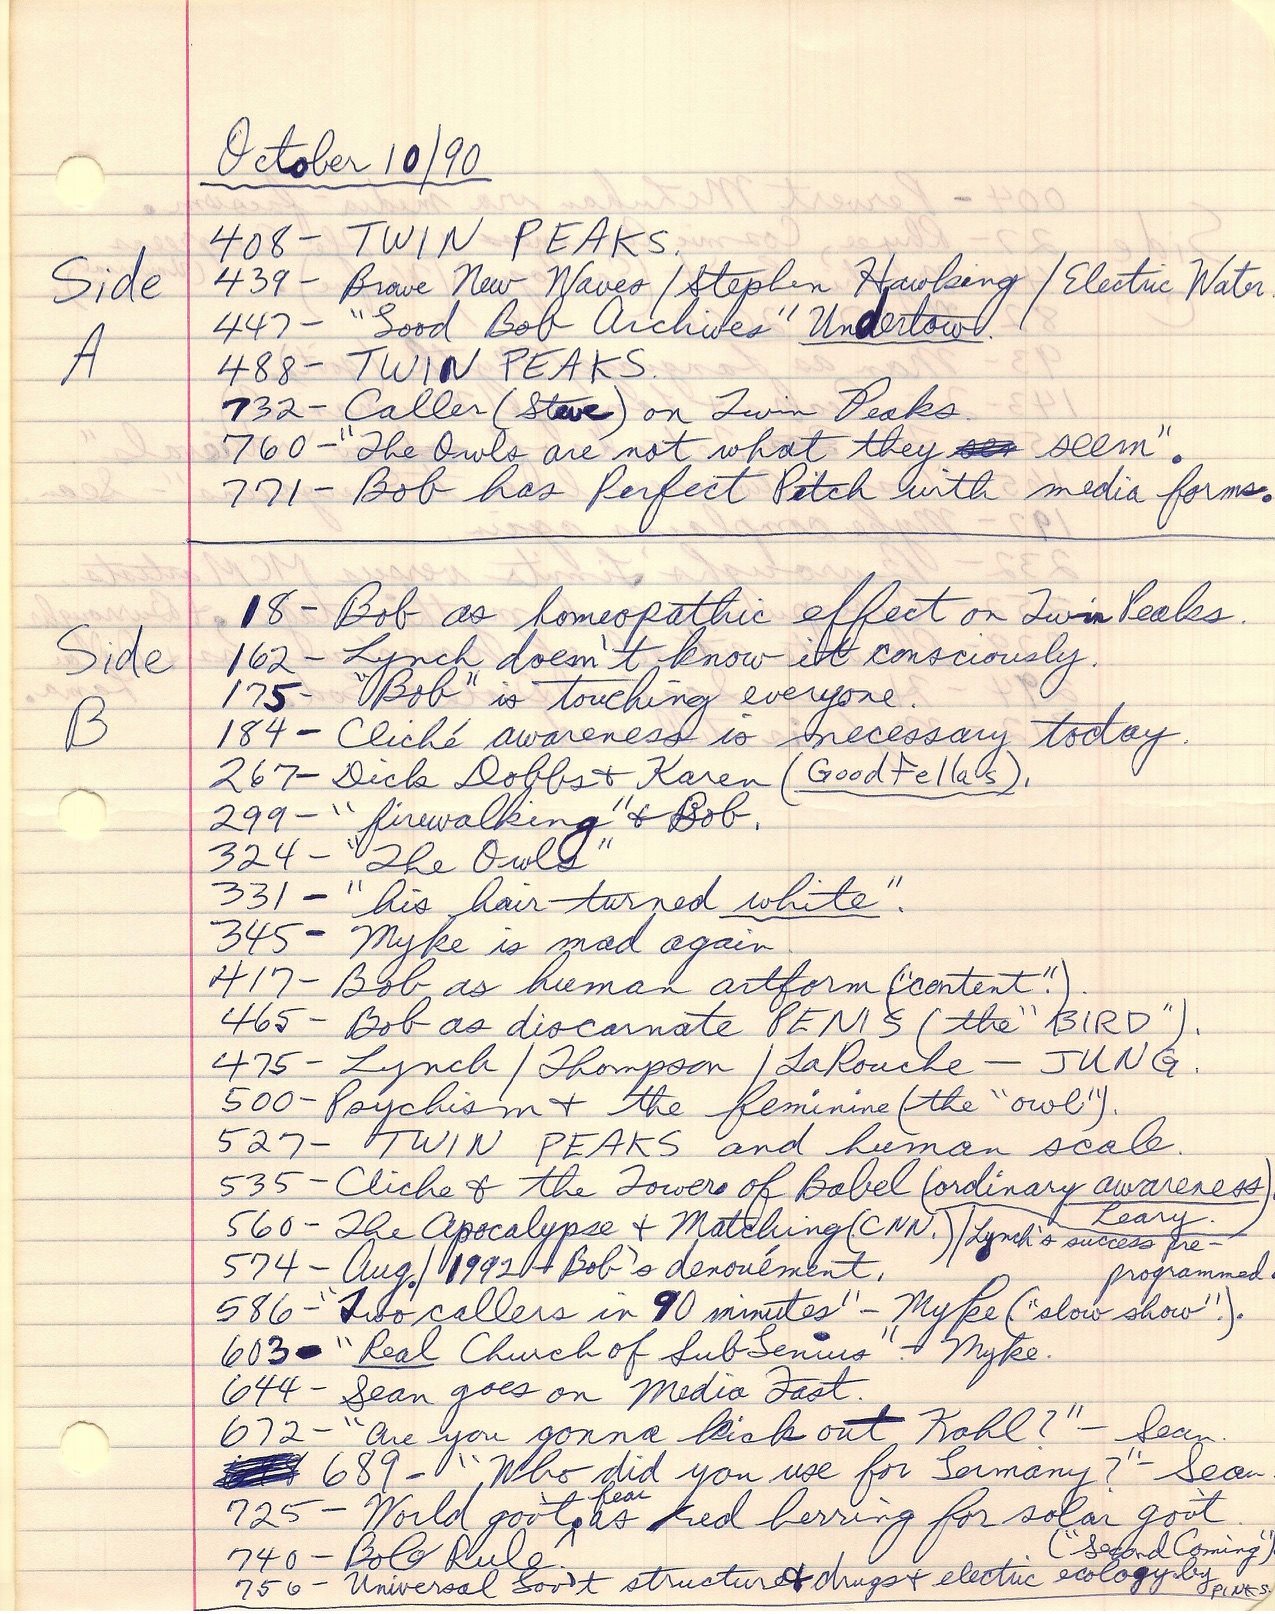 October 10/90
408- TWIN PEAKS.
Side A
439- Brave New Waves / Stephen Hawking / Electric Water.
447- "Good Bob Archives" Undertow.
488- TWIN PEAKS.
732- Caller (Steve) on Twin Peaks.
760- "The Owls are not what they seem".
771- Bob has Perfect Pitch with media forms.
Side B
18- Bob as homeopathic effect on Twin Peaks.
162- Lynch doesn't know it consciously.
175- "Bob" is touching everyone.
184- Cliché awareness is necessary today.
267- Dick Dobbs + Karen (GoodFellas).
299- "firewalking" & Bob.
324- "The Owls"
331- "his hair turned white".
345- Myke is mad again.
417- Bob as human artform ("content").
465- Bob as discarnate PENIS (the "BIRD").
475- Lynch / Thompson / LaRouche — JUNG.
500- Psychism + the feminine (the "owl").
527- TWIN PEAKS and human scale.
535- Cliche & the Towers of Babel (ordinary awareness).
Leary.
560- The Apocalypse + Matching (CNN.) / Lynch's success pre-
programmed.
574- Aug./1992 + Bob's denouément.
586- "Two callers in 90 minutes" - Myke ("slow show").
603- "Real Church of SubGenius" + Myke.
644- Sean goes on Media Fast.
672- "Are you gonna kick out Kohl?" - Sean.
689- "Who did you use for Germany?" - Sean
725- World gov't. fear as red herring for solar gov't
("Second Coming")
740- Bob's Rule.
756- Universal Gov't structure & drugs + electric ecology by PINKS.